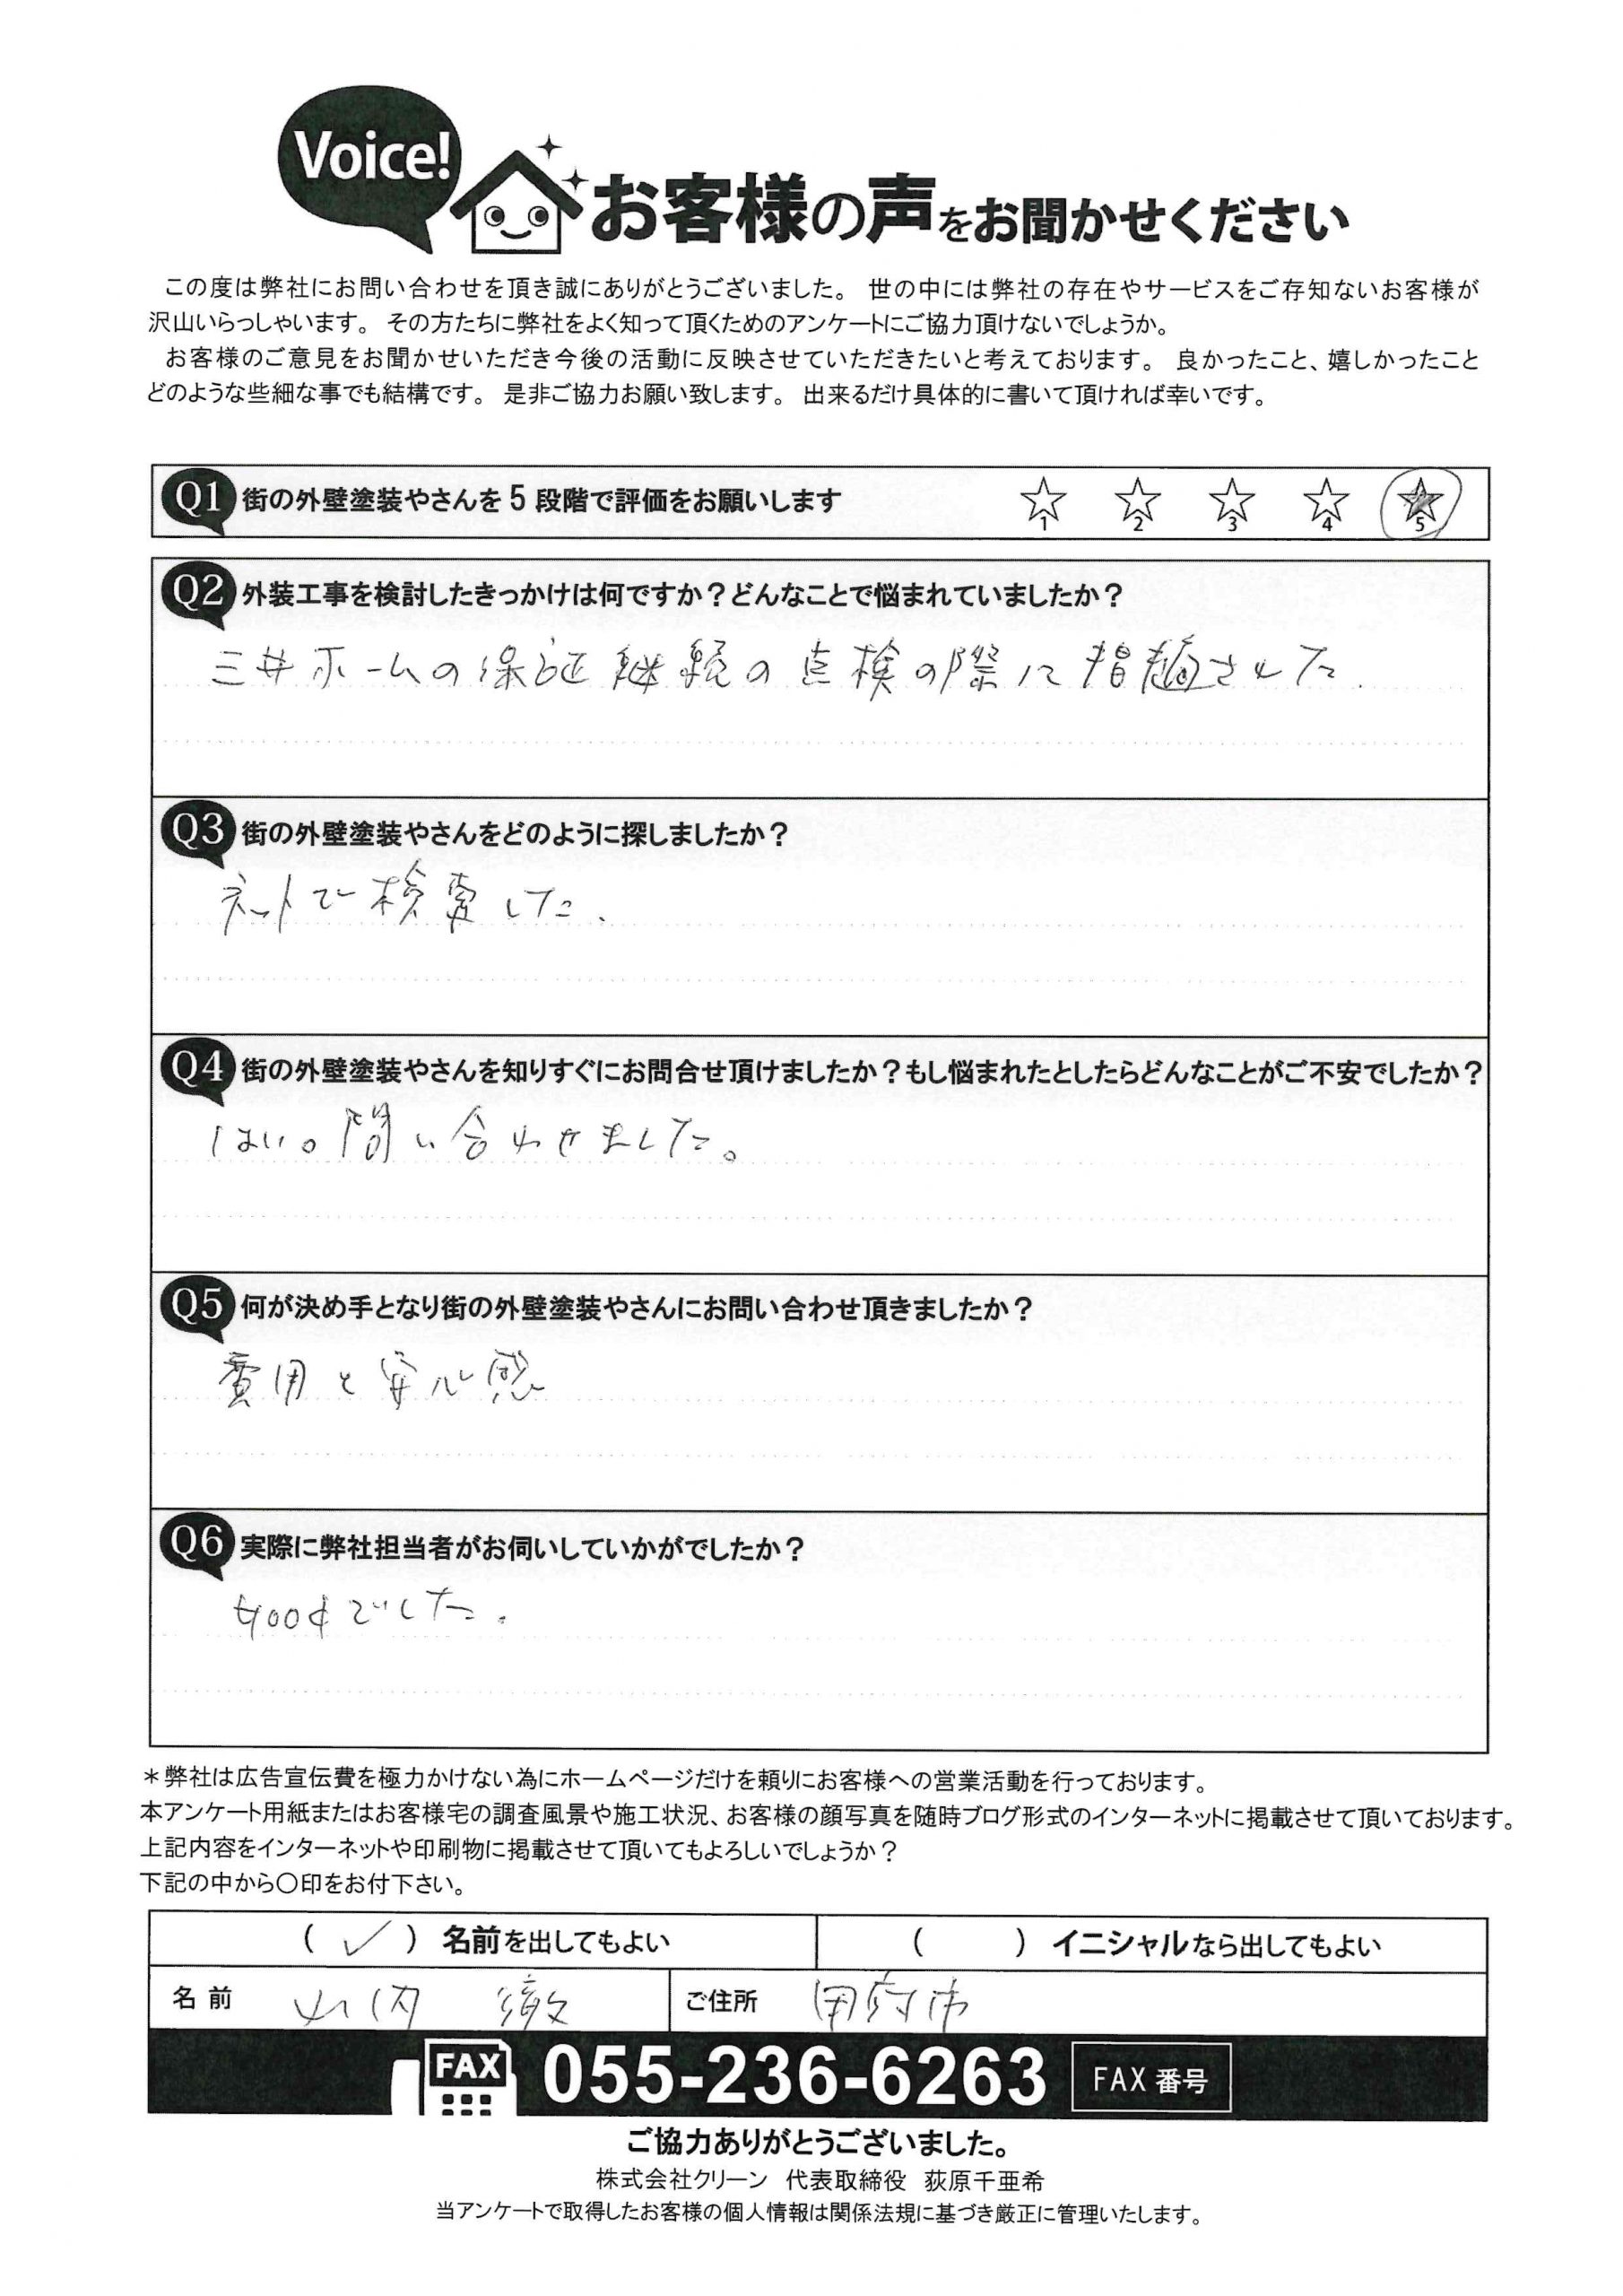 Voice!
お客様の声をお聞かせください
この度は弊社にお問い合わせを頂き誠にありがとうございました。 世の中には弊社の存在やサービスをご存知ないお客様が
沢山いらっしゃいます。 その方たちに弊社をよく知って頂くためのアンケートにご協力頂けないでしょうか。
お客様のご意見をお聞かせいただき今後の活動に反映させていただきたいと考えております。 良かったこと、嬉しかったこと
どのような些細な事でも結構です。 是非ご協力お願い致します。 出来るだけ具体的に書いて頂ければ幸いです。
Q1 街の外壁塗装やさんを5段階で評価をお願いします ☆1 ☆2 ☆3 ☆4 ☆5
Q2 外装工事を検討したきっかけは何ですか？どんなことで悩まれていましたか？
三井ホームの保証継続の点検の際に指摘された.
Q3 街の外壁塗装やさんをどのように探しましたか？
ネットで検索した.
Q4 街の外壁塗装やさんを知りすぐにお問合せ頂けましたか？もし悩まれたとしたらどんなことがご不安でしたか？
はい。問い合わせました。
Q5 何が決め手となり街の外壁塗装やさんにお問い合わせ頂きましたか？
費用と安心感
Q6 実際に弊社担当者がお伺いしていかがでしたか？
goodでした.
＊弊社は広告宣伝費を極力かけない為にホームページだけを頼りにお客様への営業活動を行っております。
本アンケート用紙またはお客様宅の調査風景や施工状況、お客様の顔写真を随時ブログ形式のインターネットに掲載させて頂いております。
上記内容をインターネットや印刷物に掲載させて頂いてもよろしいでしょうか？
下記の中から〇印をお付下さい。
（ ✓ ） 名前を出してもよい （ ） イニシャルなら出してもよい
名前 山内 徹 ご住所 甲府市
FAX 055-236-6263 FAX番号
ご協力ありがとうございました。
株式会社クリーン 代表取締役 荻原千亜希
当アンケートで取得したお客様の個人情報は関係法規に基づき厳正に管理いたします。